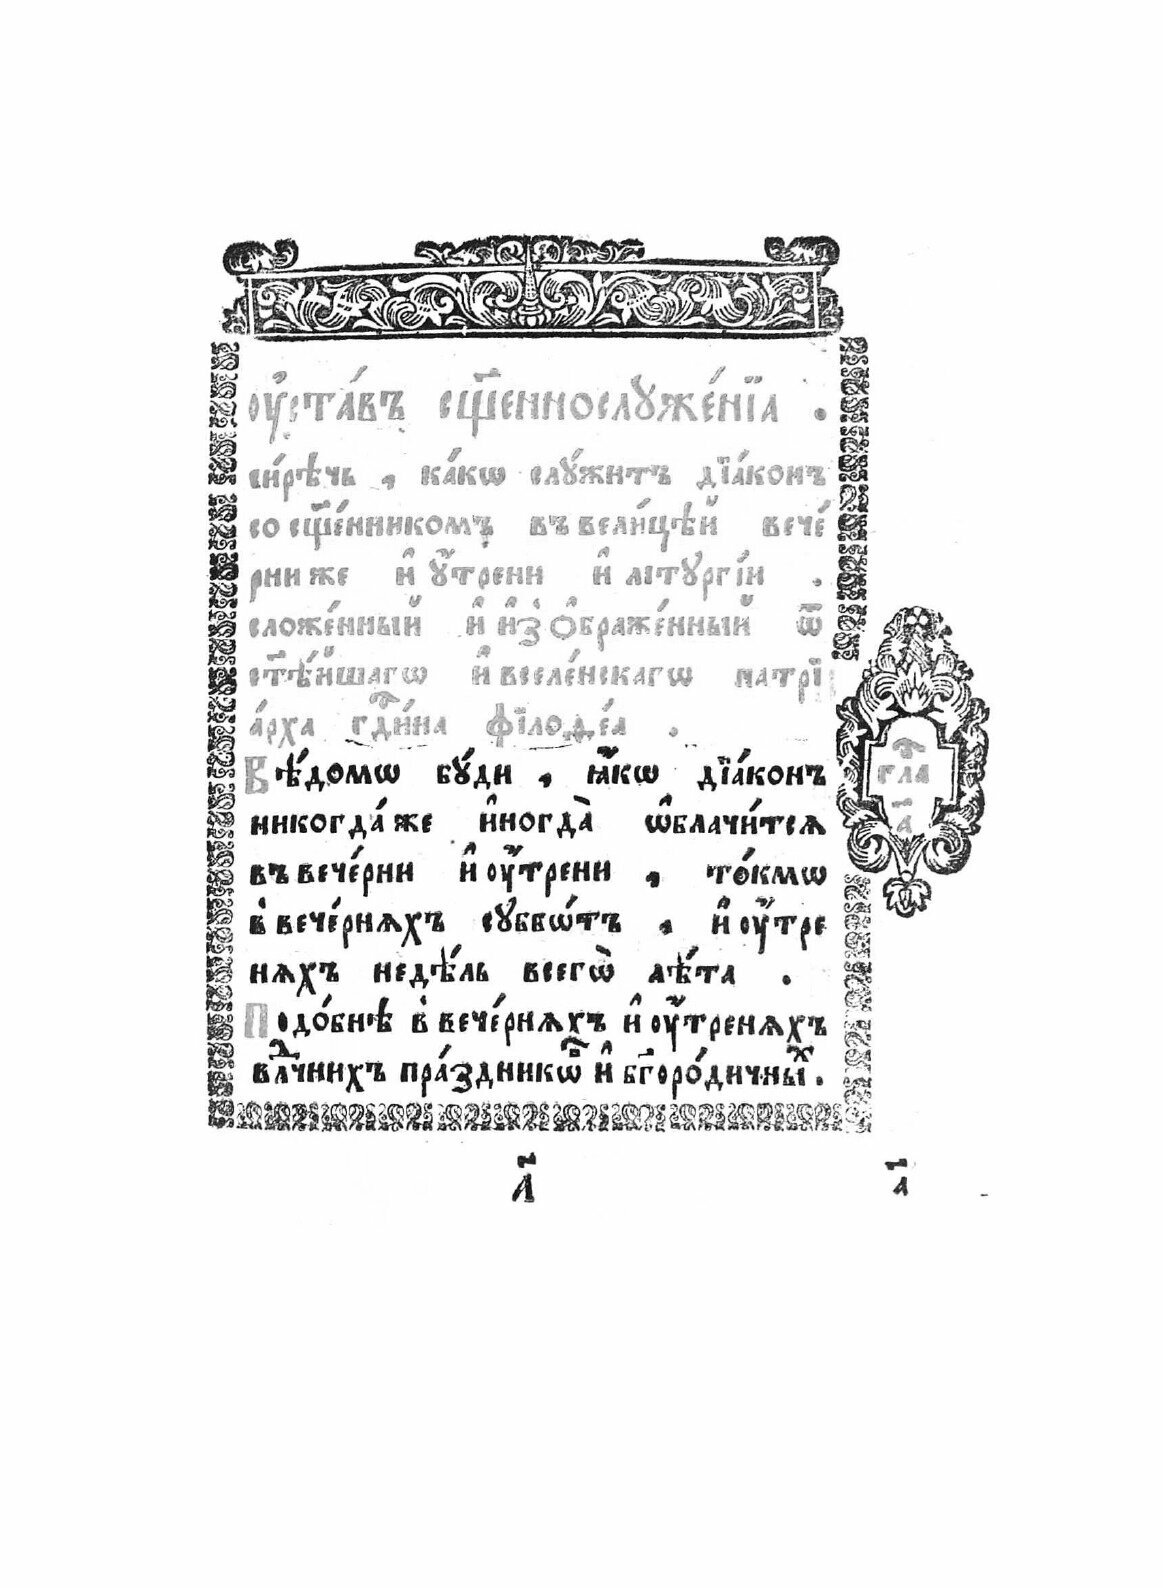 оу҆ста́въ сщ҃еннослуже́нїѧ .
си́рѣчь , ка́кѡ слꙋ́житъ дїа́конъ
со сщ҃е́нникомъ въ вели́цѣй вече́
рни же и҆ ᲂу҆́трени и҆ літꙋргі́и .
сложе́нный и҆ и҆з̾ѻбраже́нный ѿ
ст҃ѣ́йшагѡ и҆ вселе́нскагѡ патрїа
а́рха гд҇и́на фїлоѳе́а .
Вѣ́домѡ бꙋ́ди , ꙗ҆́кѡ дїа́конъ
никогда́ же и҆ногда̀ ѡ҆блачи́тсѧ
въ вече́рни и҆ оу҆́трени , то́кмѡ
в̾ вече́рнѧхъ сꙋббѡ́тъ , и҆ оу҆́тре
нѧхъ недѣ́ль всегѡ̀ лѣ́та .
Подо́бнѣ в̾ вече́рнѧхъ и҆ оу҆́тренѧхъ
влⷣчнихъ пра́здникѡⷡ и҆ бг҃оро́дичныⷯ .
глаⷡ
а҃
л҃
а҃